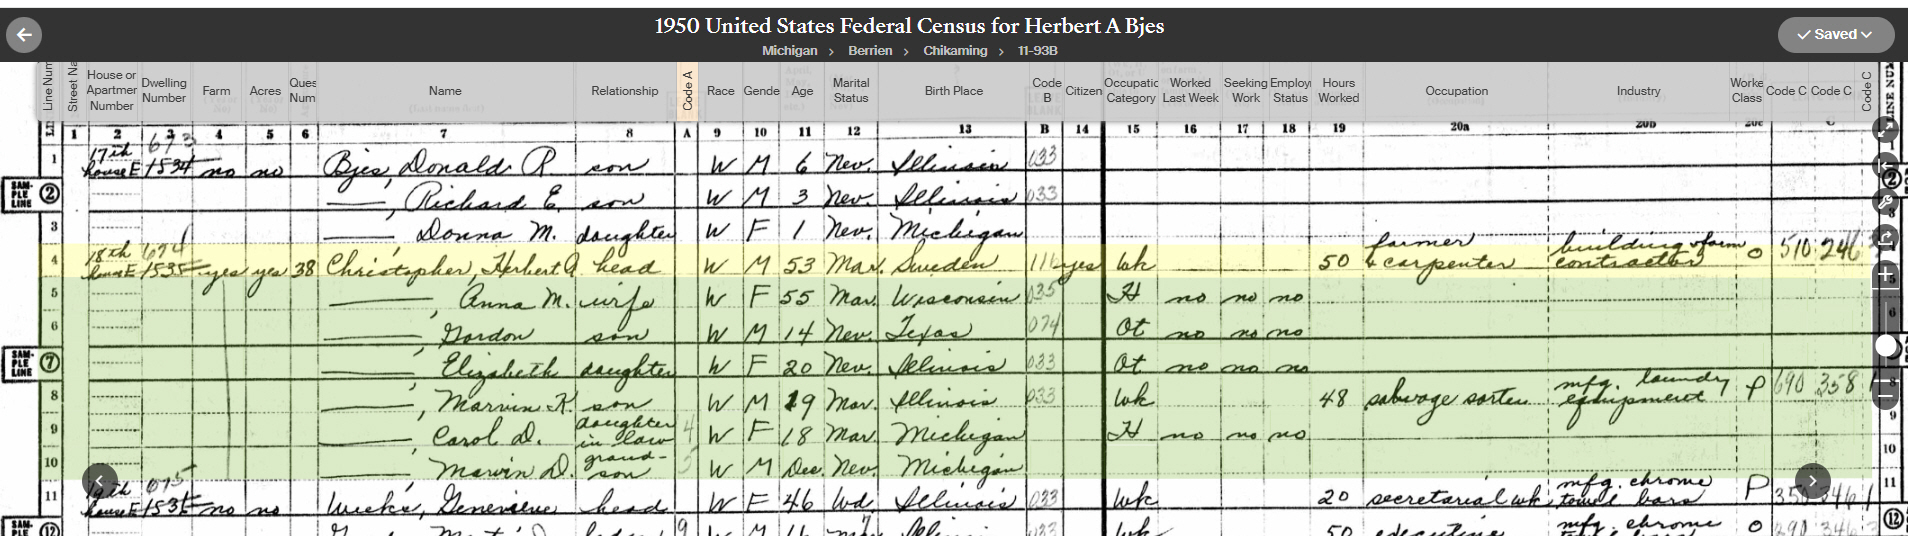 1950 United States Federal Census for Herbert A Bjes
Michigan > Berrien > Chikaming > 11-93B
Saved
Line Num Street Na House or Apartmer Number Dwelling Number Farm Acres Ques Num Name Relationship Code A Race Gende Age Marital Status Birth Place Code B Citizen Occupatic Category Worked Last Week Seeking Work Employ Status Hours Worked Occupation Industry Worke Class Code C Code C Code C LINE NUM
1 2 3 4 5 6 7 8 A 9 10 11 12 13 B 14 15 16 17 18 19 20a 20b 20c C
673
1 17th house E 1534 no no Bjes, Donald R. son W M 6 Nev. Illinois 033
SAM-PLE LINE 2 ——, Richard E. son W M 3 Nev. Illinois 033 2
3 —— Donna M. daughter W F 1 Nev. Michigan 3
4 18th house E 674 1535 yes yes 38 Christopher, Herbert A head W M 53 Mar. Sweden 116 yes Wk 50 farmer & carpenter building & farm contractor O 510 246
5 ——, Anna M. wife W F 55 Mar. Wisconsin 035 H no no no 5
6 ——, Gordon son W M 14 Nev. Texas 074 Ot no no no 6
SAM-PLE LINE 7 ——, Elizabeth daughter W F 20 Nev. Illinois 033 Ot no no no
8 ——, Marvin K. son W M 19 Mar. Illinois 033 Wk 48 salvage sorter mfg. laundry equipment P 690 358 1 8
9 ——, Carol D. daughter in law 4 W F 18 Mar. Michigan H no no no 9
10 ——, Marvin D. grand-son 5 W M Dec. Nev. Michigan 10
11 19th house E 675 1535 no no Weeks, Genevieve head W F 46 Wd. Illinois 033 Wk 20 secretarial wk mfg. chrome towel bars P 350 346 1 11
SAM- 12 9 W M Illinois 033 Wk 50 executive mfg. chrome O 290 346 12